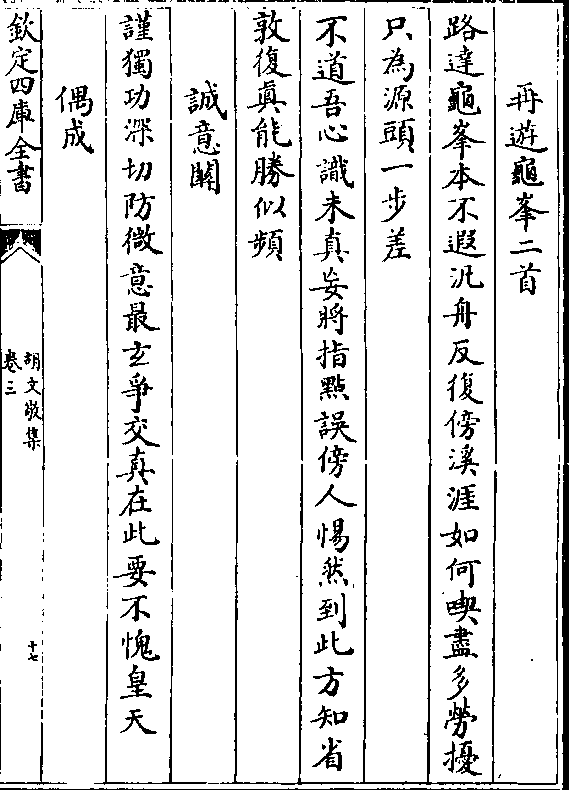 再遊龜峯二首
路達龜峯本不遐汎舟反復傍溪涯如何喫盡多勞擾
只為源頭一步差
不道吾心識未真妄將指點誤傍人惕然到此方知省
敦復眞能勝似頻
誠意關
謹獨功深切防微意最玄爭交真在此要不愧皇天
偶成
欽定四庫全書
胡文敬集
卷三
十七